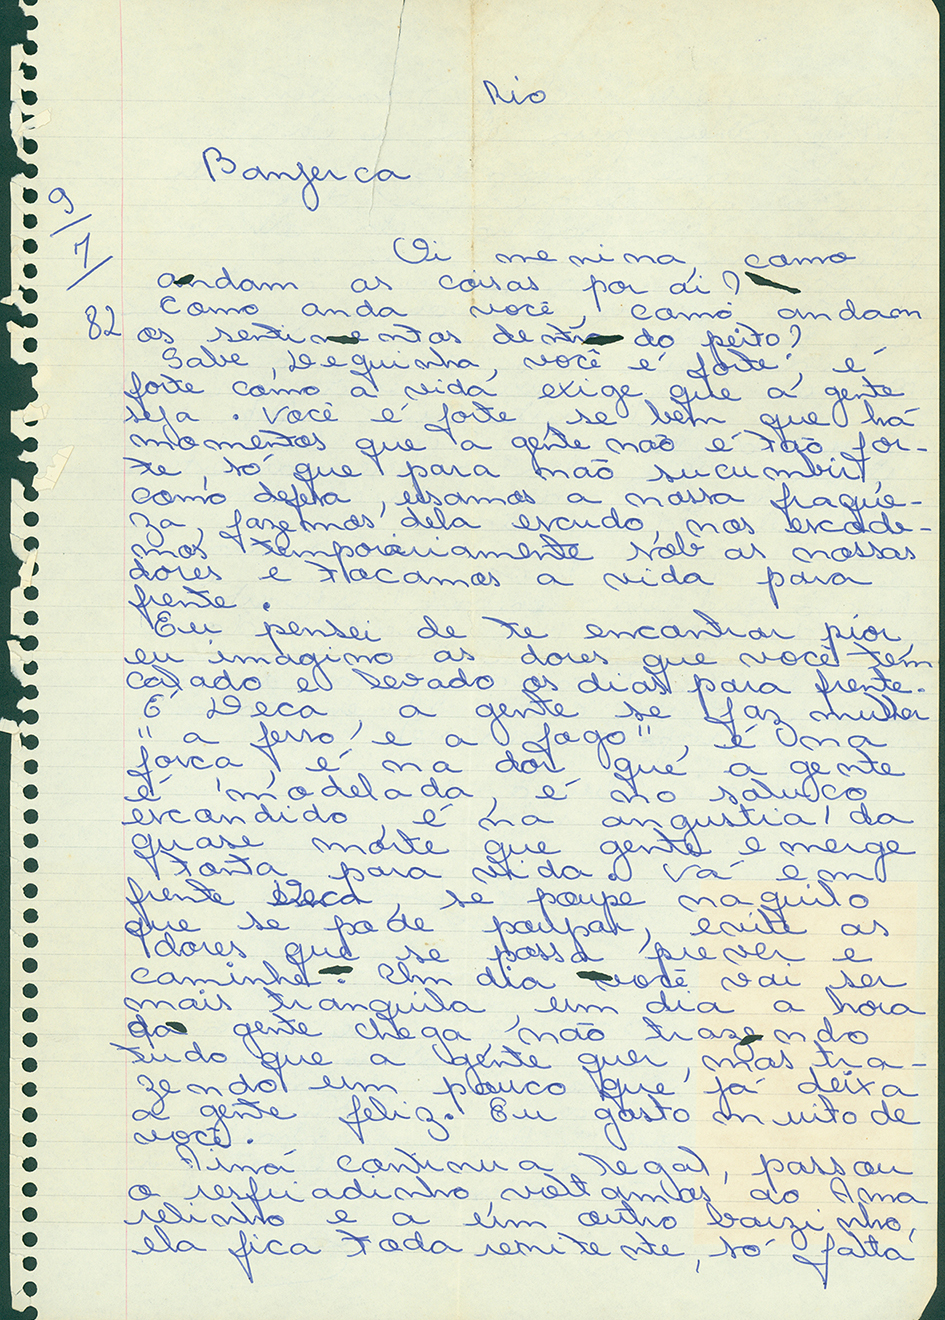 Rio
Banzerca
9/7/82
Oi menina, como
andam as coisas por aí?
Como anda você, como andam
os sentimentos dentro do peito?
Sabe, Dequinha, você é forte, é
forte como a vida exige que a gente
seja. Você é forte, se bem que há
momentos que a gente não é tão for-
te só que para não sucumbir,
como defesa, usamos a nossa fraque-
za, fazemos dela escudo, nos escode-
mos temporariamente sob as nossas
dores e tocamos a vida para
frente.
Eu pensei de te encontrar pior,
eu imagino as dores que você tem
calado e levado os dias para frente.
É Deca, a gente se faz mulher
"a ferro e a fogo", é na
força, é na dor que a gente
é modelada, é no soluço
escondido, é na angustia da
quase morte que gente emerge
tonta para vida. Vá em
frente Deca, se poupe naquilo
que se pode poupar, evite as
dores que se possa prever e
caminhe. Um dia você vai ser
mais tranquila, um dia a hora
da gente chega não trazendo
tudo que a gente quer, mas tra-
zendo um pouco que já deixa
a gente feliz. Eu gosto muito de
você.
continua legal, passou
o resfriadinho voltamos ao Ama
relinho e a um outro barzinho,
ela fica toda renitente, só falta